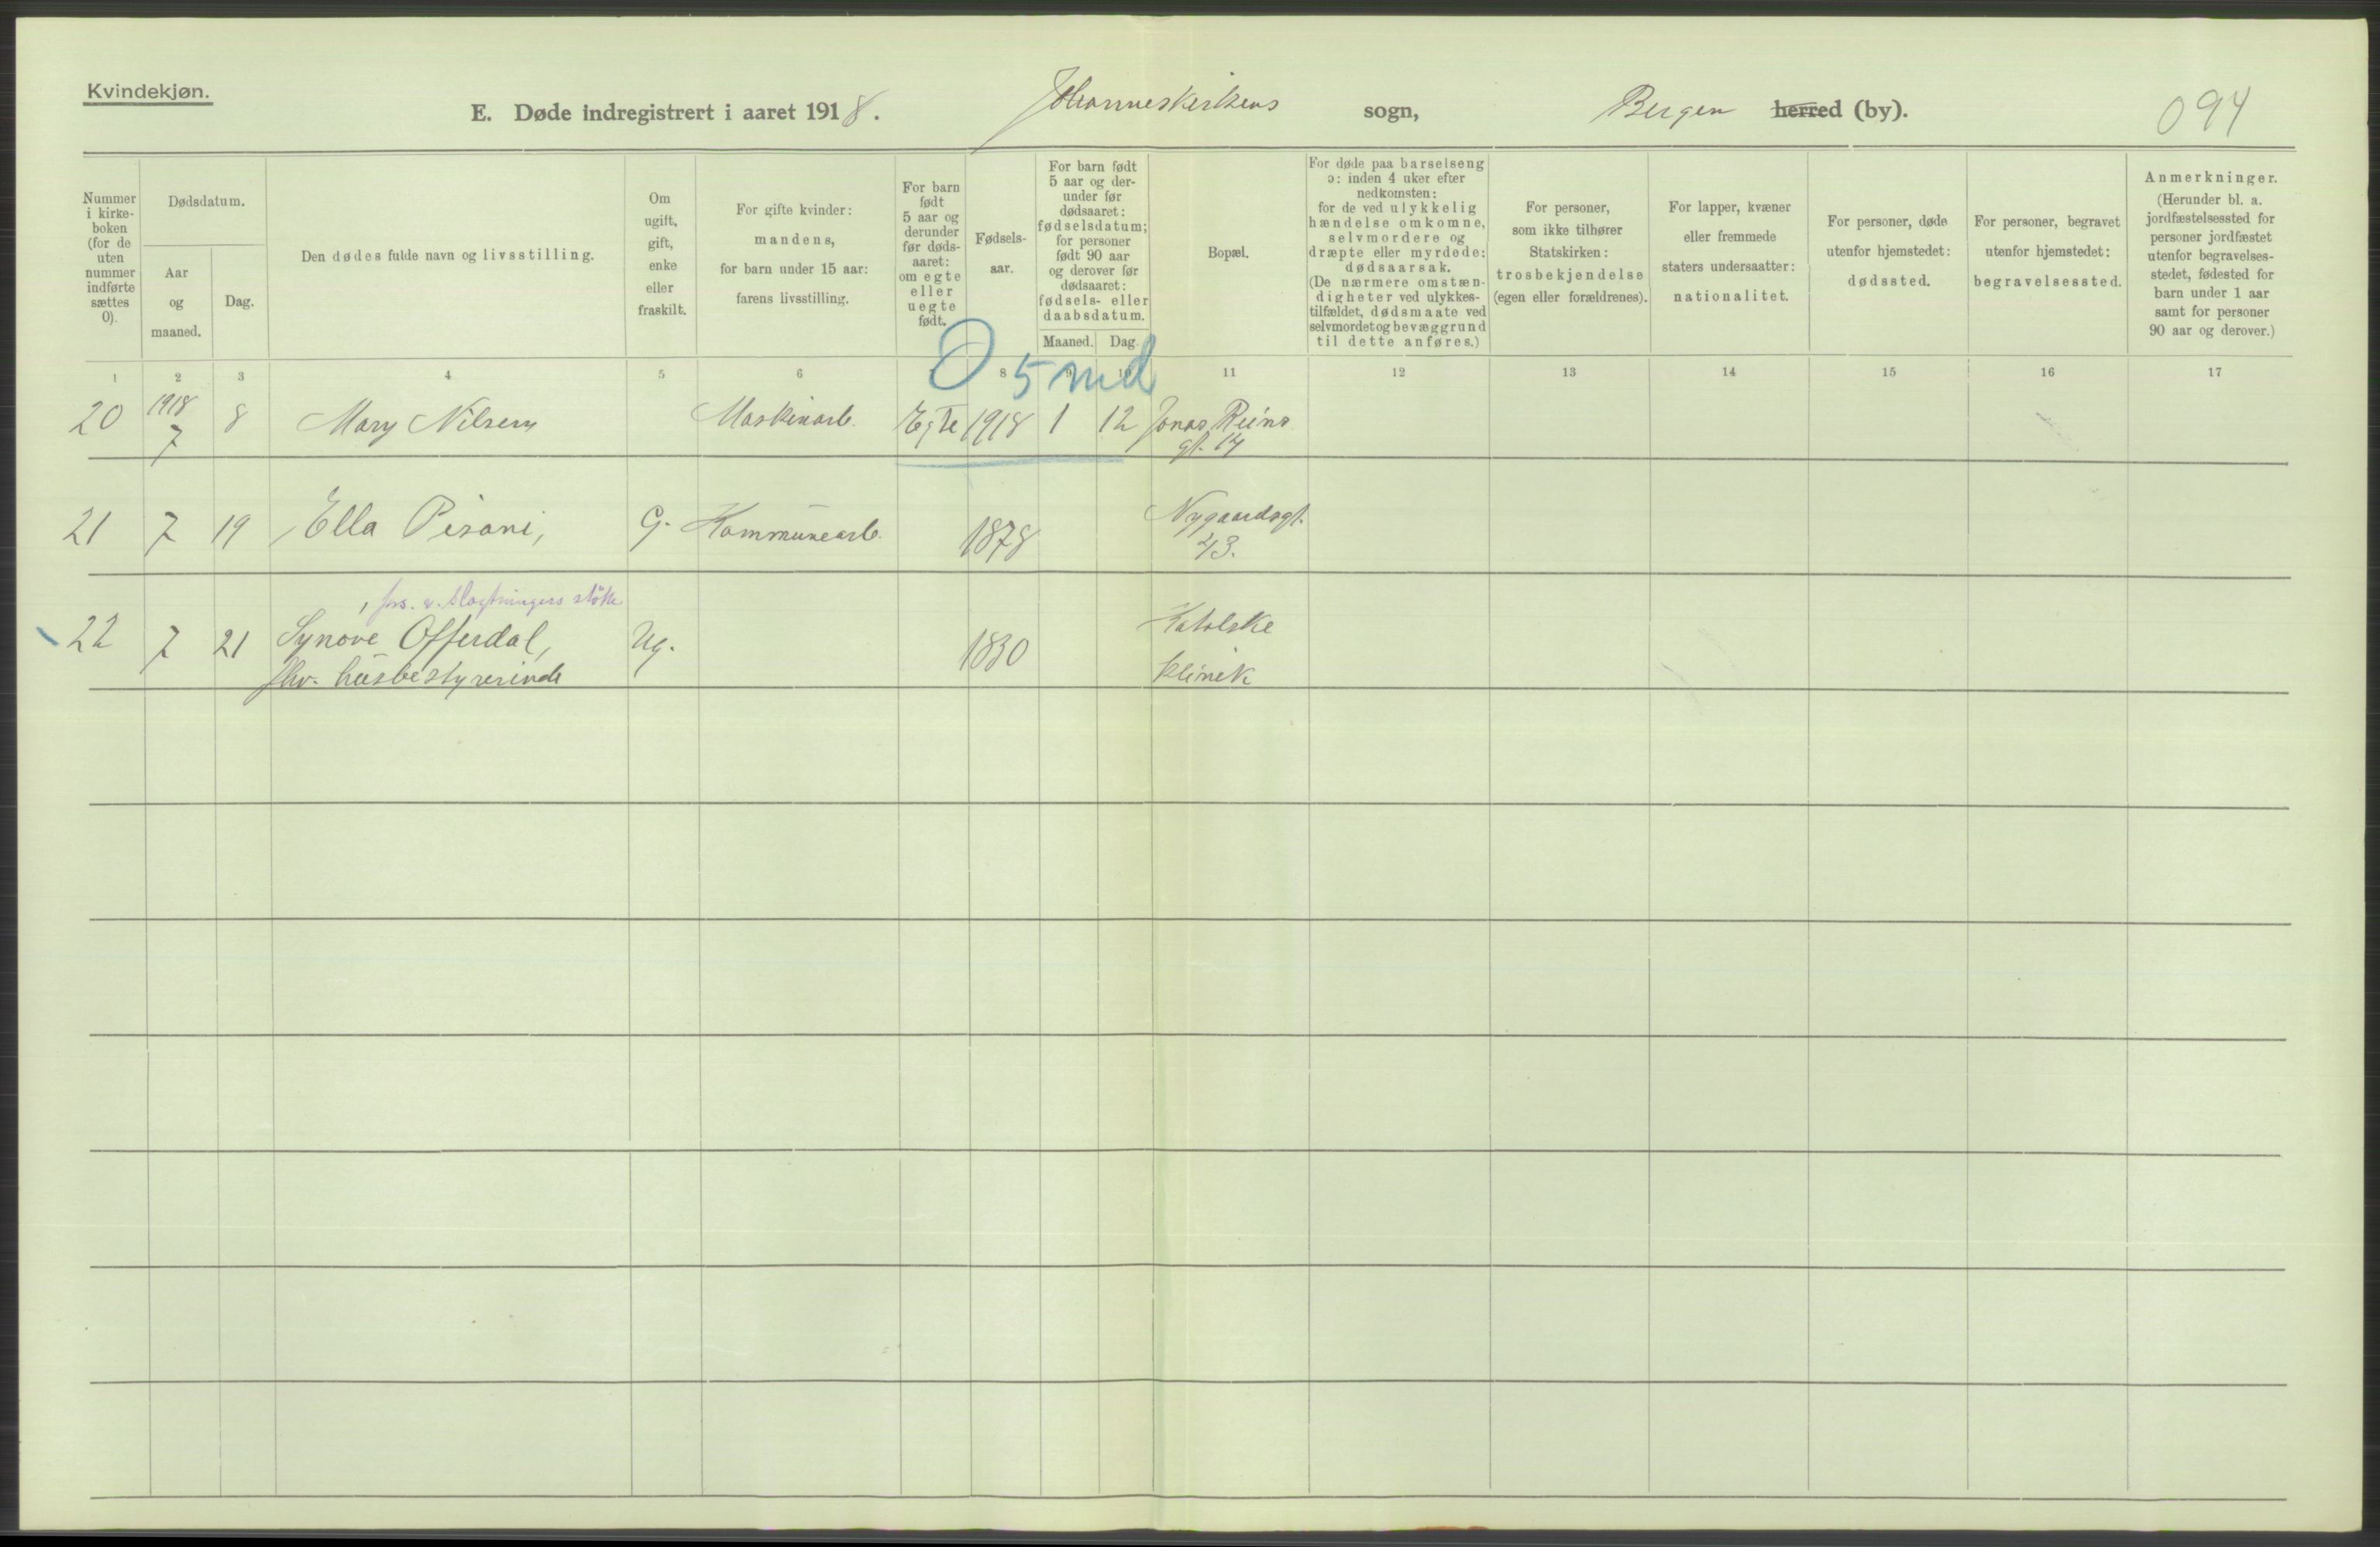 Kvindekjøn.
E. Døde indregistrert i aaret 1918. Johanneskirkens sogn, Bergen herred (by). 094
Nummer i kirke-boken (for de uten nummer indførte sættes 0).
Dødsdatum.
Aar og maaned.
Dag.
Den dødes fulde navn og livsstilling.
Om ugift, gift, enke eller fraskilt.
For gifte kvinder: mandens, for barn under 15 aar: farens livsstilling.
For barn født 5 aar og derunder før døds-aaret: om egte eller uegte født.
Fødsels-aar.
For barn født 5 aar og der-under før dødsaaret: fødselsdatum; for personer født 90 aar og derover før dødsaaret: fødsels- eller daabsdatum.
Maaned. Dag.
Bopæl.
For døde paa barselseng ɔ: inden 4 uker efter nedkomsten: for de ved ulykkelig hændelse omkomne, selvmordere og dræpte eller myrdede: dødsaarsak. (De nærmere omstæn-digheter ved ulykkes-tilfældet, dødsmaate ved selvmordet og bevæggrund til dette anføres.)
For personer, som ikke tilhører Statskirken: trosbekjendelse (egen eller forældrenes).
For lapper, kvæner eller fremmede staters undersaatter: nationalitet.
For personer, døde utenfor hjemstedet: dødssted.
For personer, begravet utenfor hjemstedet: begravelsessted.
Anmerkninger. (Herunder bl. a. jordfæstelsessted for personer jordfæstet utenfor begravelses-stedet, fødested for barn under 1 aar samt for personer 90 aar og derover.)
1 2 3 4 5 6 8 9 10 11 12 13 14 15 16 17
0 5 md
20 1918 7 8 Mary Nilsen Maskinarb. Egte 1918 1 12 Jonas Reins gt. 14
21 7 19 Ella Pisani, G. Kommunearb. 1878 Nygaardsgt. 43.
, fors. v. slegtningers støtte
22 7 21 Synove Offerdal, Ug. 1830 Katolske
fhv. husbestyrerinde klinik